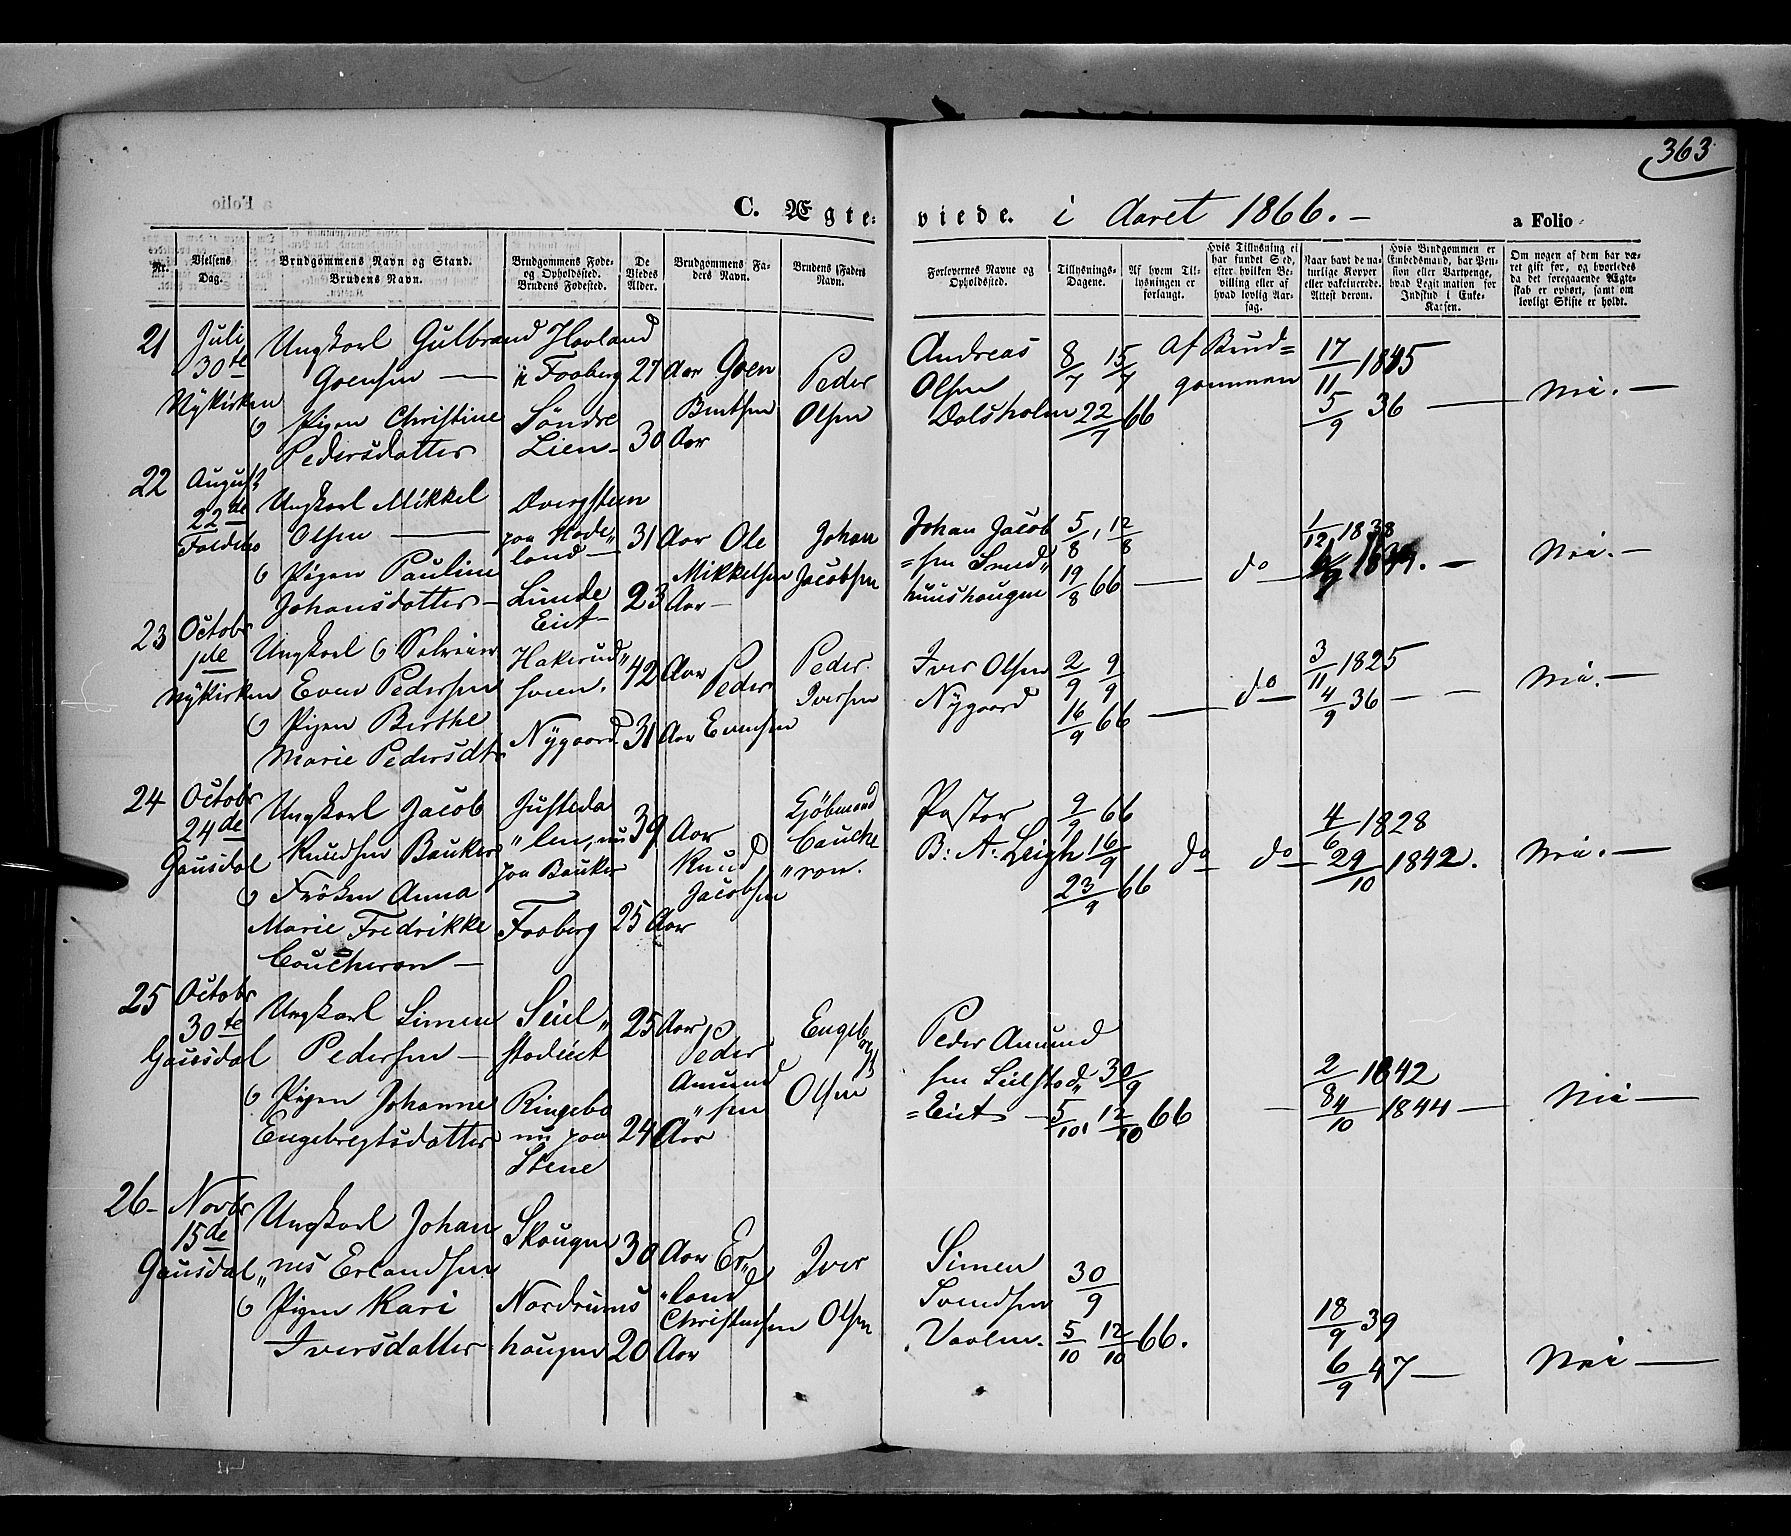 363
C. Ægte- viede. i Aaret 1866. — a Folio
Nr.
Vielsens Dag.
Brudgommens Navn og Stand.
Brudens Navn.
Brudgommens Føde- og Opholdssted.
Brudens Fødested.
De Viedes Alder.
Brudgommens Faders Navn.
Brudens Faders Navn.
Forlovernes Navne og Opholdssted.
Tillysnings-Dagene.
Af hvem Tillysningen er forlangt.
Hvis Tillysning ei har fundet Sted, efter hvilken Bevilling eller af hvad lovlig Aarsag.
Naar havt de naturlige Kopper eller vakcinerede. Attest derom.
Hvis Brudgommen er Embedsmand, har Pension eller Vartpenge, hvad Legitimation for Indskud i Enke-Kassen.
Om nogen af dem har været gift før, og hvorledes da det foregaaende Ægteskab er ophørt, samt om lovligt Skifte er holdt.
21 Juli 30te Nykirken
Ungkarl Gulbrand
Goensen —
& Pigen Christine
Pedersdatter
Hovland
i Faaberg
Søndre
Lien
27 Aar
30 Aar
Goen
Berntsen
Peder
Olsen
Andreas
Olsen
Dalsholm
8/7 15/7
22/7 66
Af Brud=
gommen
17/11 1845
5/9 36 —
Nei. —
22 August 22de Foldebo
Ungkarl Mikkel
Olsen —
& Pigen Pauline
Johansdatter —
Dvergsteen
paa Hade„
land —
Lunde
Eiet —
31 Aar
23 Aar —
Ole
Mikkelsen
Johan
Jacobsen
Johan Jacob
=sen Smed„
huushaugen
5/8, 12/8
19/8 66 —
do
1/12 1838
Nei. —
23 Octobr 1ste Nykirken
Ungkarl & Selveier
Even Pedersen
& Pigen Berthe
Marie Pedersdtr
Hakerud„
sveen.
Nygaard
42 Aar
31 Aar
Peder
Evensen
Peder
Iversen
Iver Olsen
Nygaard
2/9 9/9
16/9 66 —
do
3/11 1825
4/9 36 —
Nei. —
24 Octobr 24de Gausdal
Ungkarl Jacob
Knudsen Bauker
& Frøken Anna
Marie Fredrikke
Coucheron —
Justeda
„len, nu
paa Bauker
Faaberg
39 Aar
25 Aar
Knud
Jacobsen
Kjøbmand
Couche
„ron.
Pastor
B: A: Leigh
9/9 66
16/9
23/9 66
do do
4/6 1828
29/10 1842.
Nei. —
25 Octobr 30te Gausdal
Ungkarl Simen
Pedersen —
& Pigen Johanne
Engebregtsdatter
Seiel„
stadeiet
Ringebo
nu paa
Stene
25 Aar
24 Aar
Peder
Amund
„sen
Engebregt
Olsen
Peder Amund
sen Seielstad„
=Eiet —
30/9
5/10, 12/10 66
2/8 1842
4/10 1844 —
Nei —
26 — Novbr 15de Gausdal
Ungkarl Johan
„nes Erlandsen
& Pigen Kari
Iversdatter
Skougen
Nordrums
haugen
30 Aar
20 Aar
Er„
„land
Christensen
Iver
Olsen
Simen
Svendsen
30/9
5/10 12/10 66.
18/9 39
6/9 47 —
Nei —